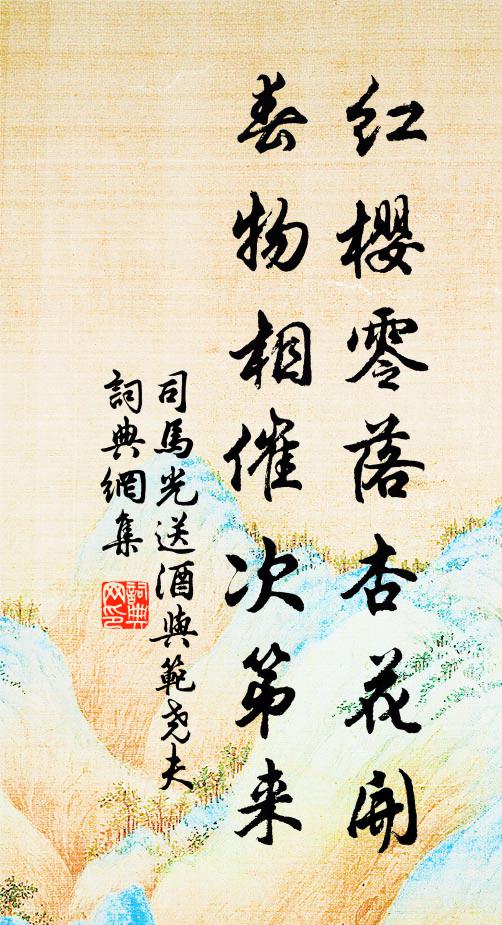 红樱零落杏花開
春物相催次第来
司馬光送酒與範尭夫
詞典網集
詞典网印